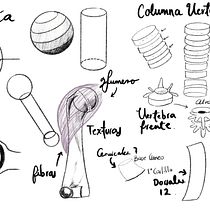 Columna Vert
Humero
Texturas
fibras
Vertebra
frente
Cervicales 7
Base Craneo
1ª Costilla
Dorsales
12